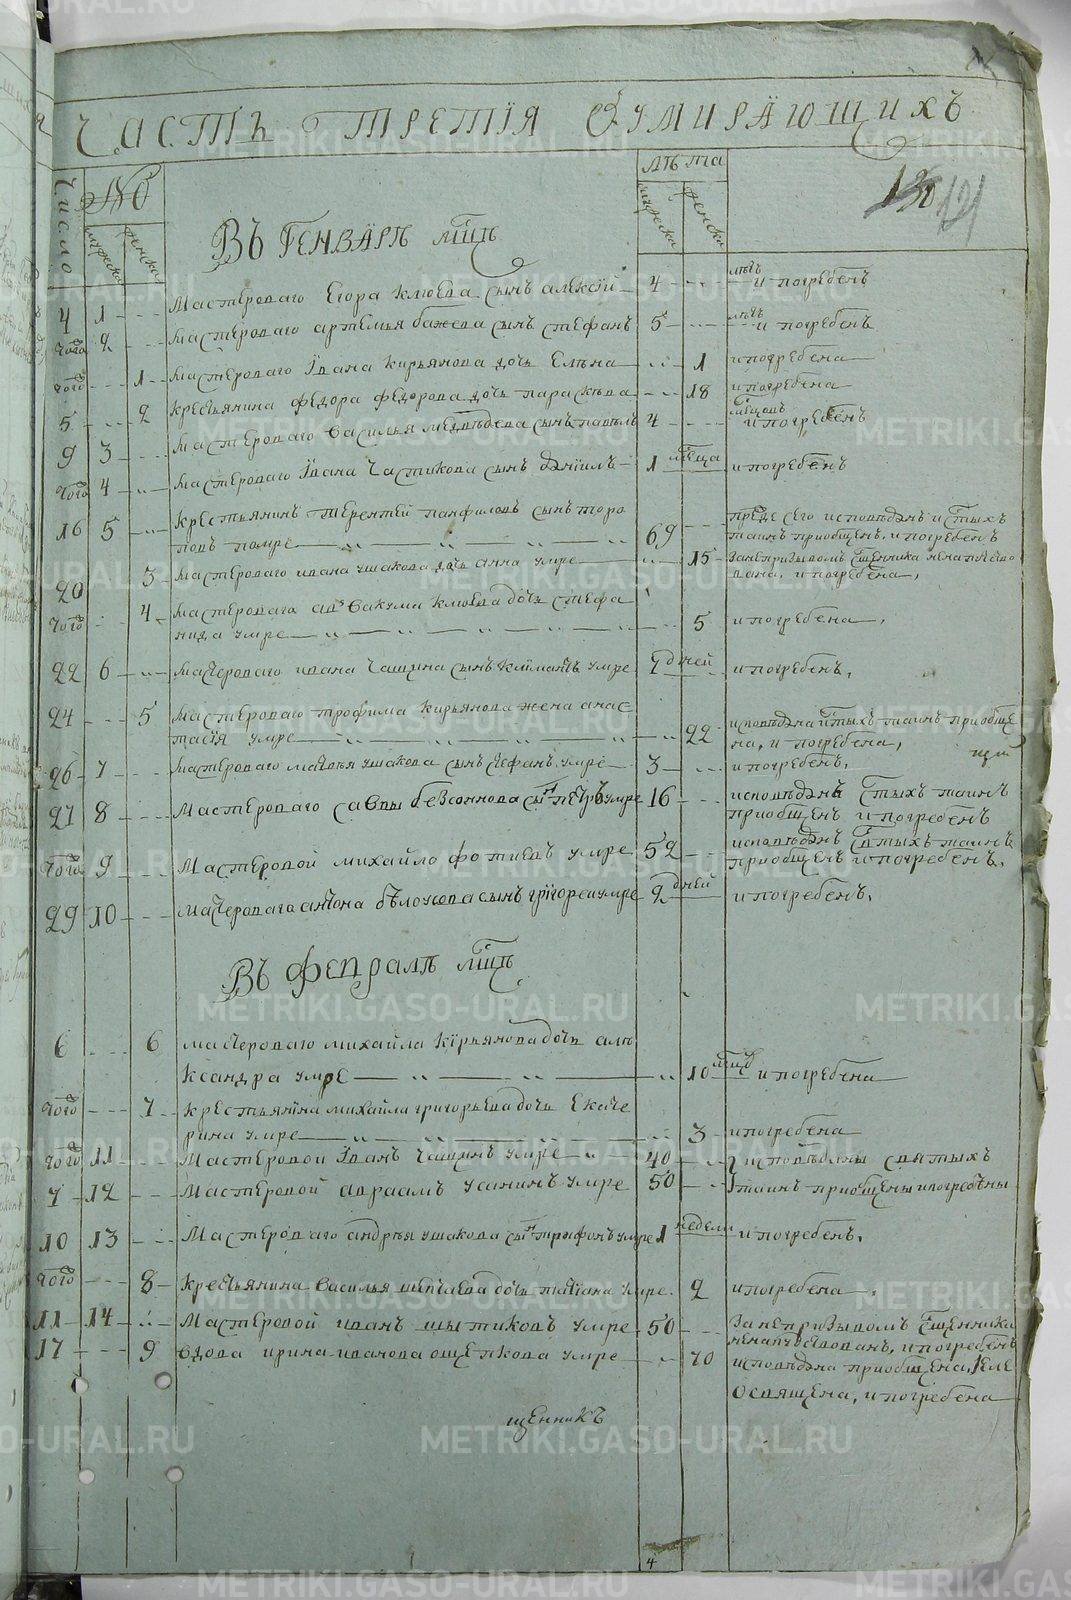 ЧАСТЬ ТРЕТІЯ ОУМИРАЮЩИХЪ
Число № лѣта
мужеска женска мужеска женска
121
ВЪ ГЕНВАРѢ мцѣ
4 1 Мастероваго Егора Клюева сынъ алексїй 4 лѣтъ и погребенъ
того 2 Мастероваго артемья бажева сынъ стефанъ 5 лѣтъ и погребенъ
того 1 Мастероваго Iвана кирьянова дочь Елѣна 1 и погребена
5 2 крестьянина федора федорова дочь параскѣва 18 и погребена
9 3 Мастероваго василья медвѣдева сынъ павелъ 4 мѣцовъ и погребенъ
того 4 Мастероваго Iвана Частикова сынъ данїилъ 1 мѣсца и погребенъ
16 5 крестьянинъ терентей панфиловъ сынъ торо
повъ помре 69 преде сего исповѣданъ и стыхъ
таинъ приобщенъ, и погребенъ
20 3 Мастероваго ивана ушакова дочь анна умре 15 Занепризывомъ Сщенника ненапутство
вана, и погребена,
того 4 Мастероваго аввакума клюева дочь стефа
нида умре 5 и погребена,
22 6 Мастероваго ивана Чащина сынъ климантъ умре 7 дней и погребенъ,
24 5 Мастероваго трофима кирьянова жена анас
тасїя умре 22 исповѣдана стыхъ таинъ приобще
на, и погребена,
26 7 Мастероваго матвѣя ушакова сынъ стефанъ умре 3 и погребенъ,
27 8 Мастероваго саввы безсоннова сынъ петръ умре 16 исповѣданъ Стыхъ таинъ
приобщенъ и погребенъ
того 9 Мастеровой михайло фотиевъ умре 52 исповѣданъ Стыхъ таинъ
приобщенъ и погребенъ,
29 10 Мастероваго антона бѣлоусова сынъ григорей умре 2 дней и погребенъ,
ВЪ февралѣ мцѣ
6 6 мастероваго михайла кирьянова дочь але
ксандра умре 10 мцовъ и погребена
того 7 крестьянина михайла григорьева дочь Екате
рина умре 3 и погребена
того 11 Мастеровой Iванъ Чащинъ умре 40 исповѣданы святыхъ
7 12 Мастеровой авраамъ усанинъ умре 50 таинъ приобщены и погребены
10 13 Мастероваго андрѣя ушакова сынъ трифонъ умре 1 недели и погребенъ,
того 8 крестьянина василья дочь татїана умре 2 и погребена,
11 14 Мастеровой иванъ шытиковъ умре 50 Занепризывомъ Сщенника
ненапутствованъ, и погребенъ
17 9 вдова ирина иванова ощепкова умре 70 исповѣдана приобщена, Еле
Освящена, и погребена
щенникъ
4
METRIKI.GASO-URAL.RU